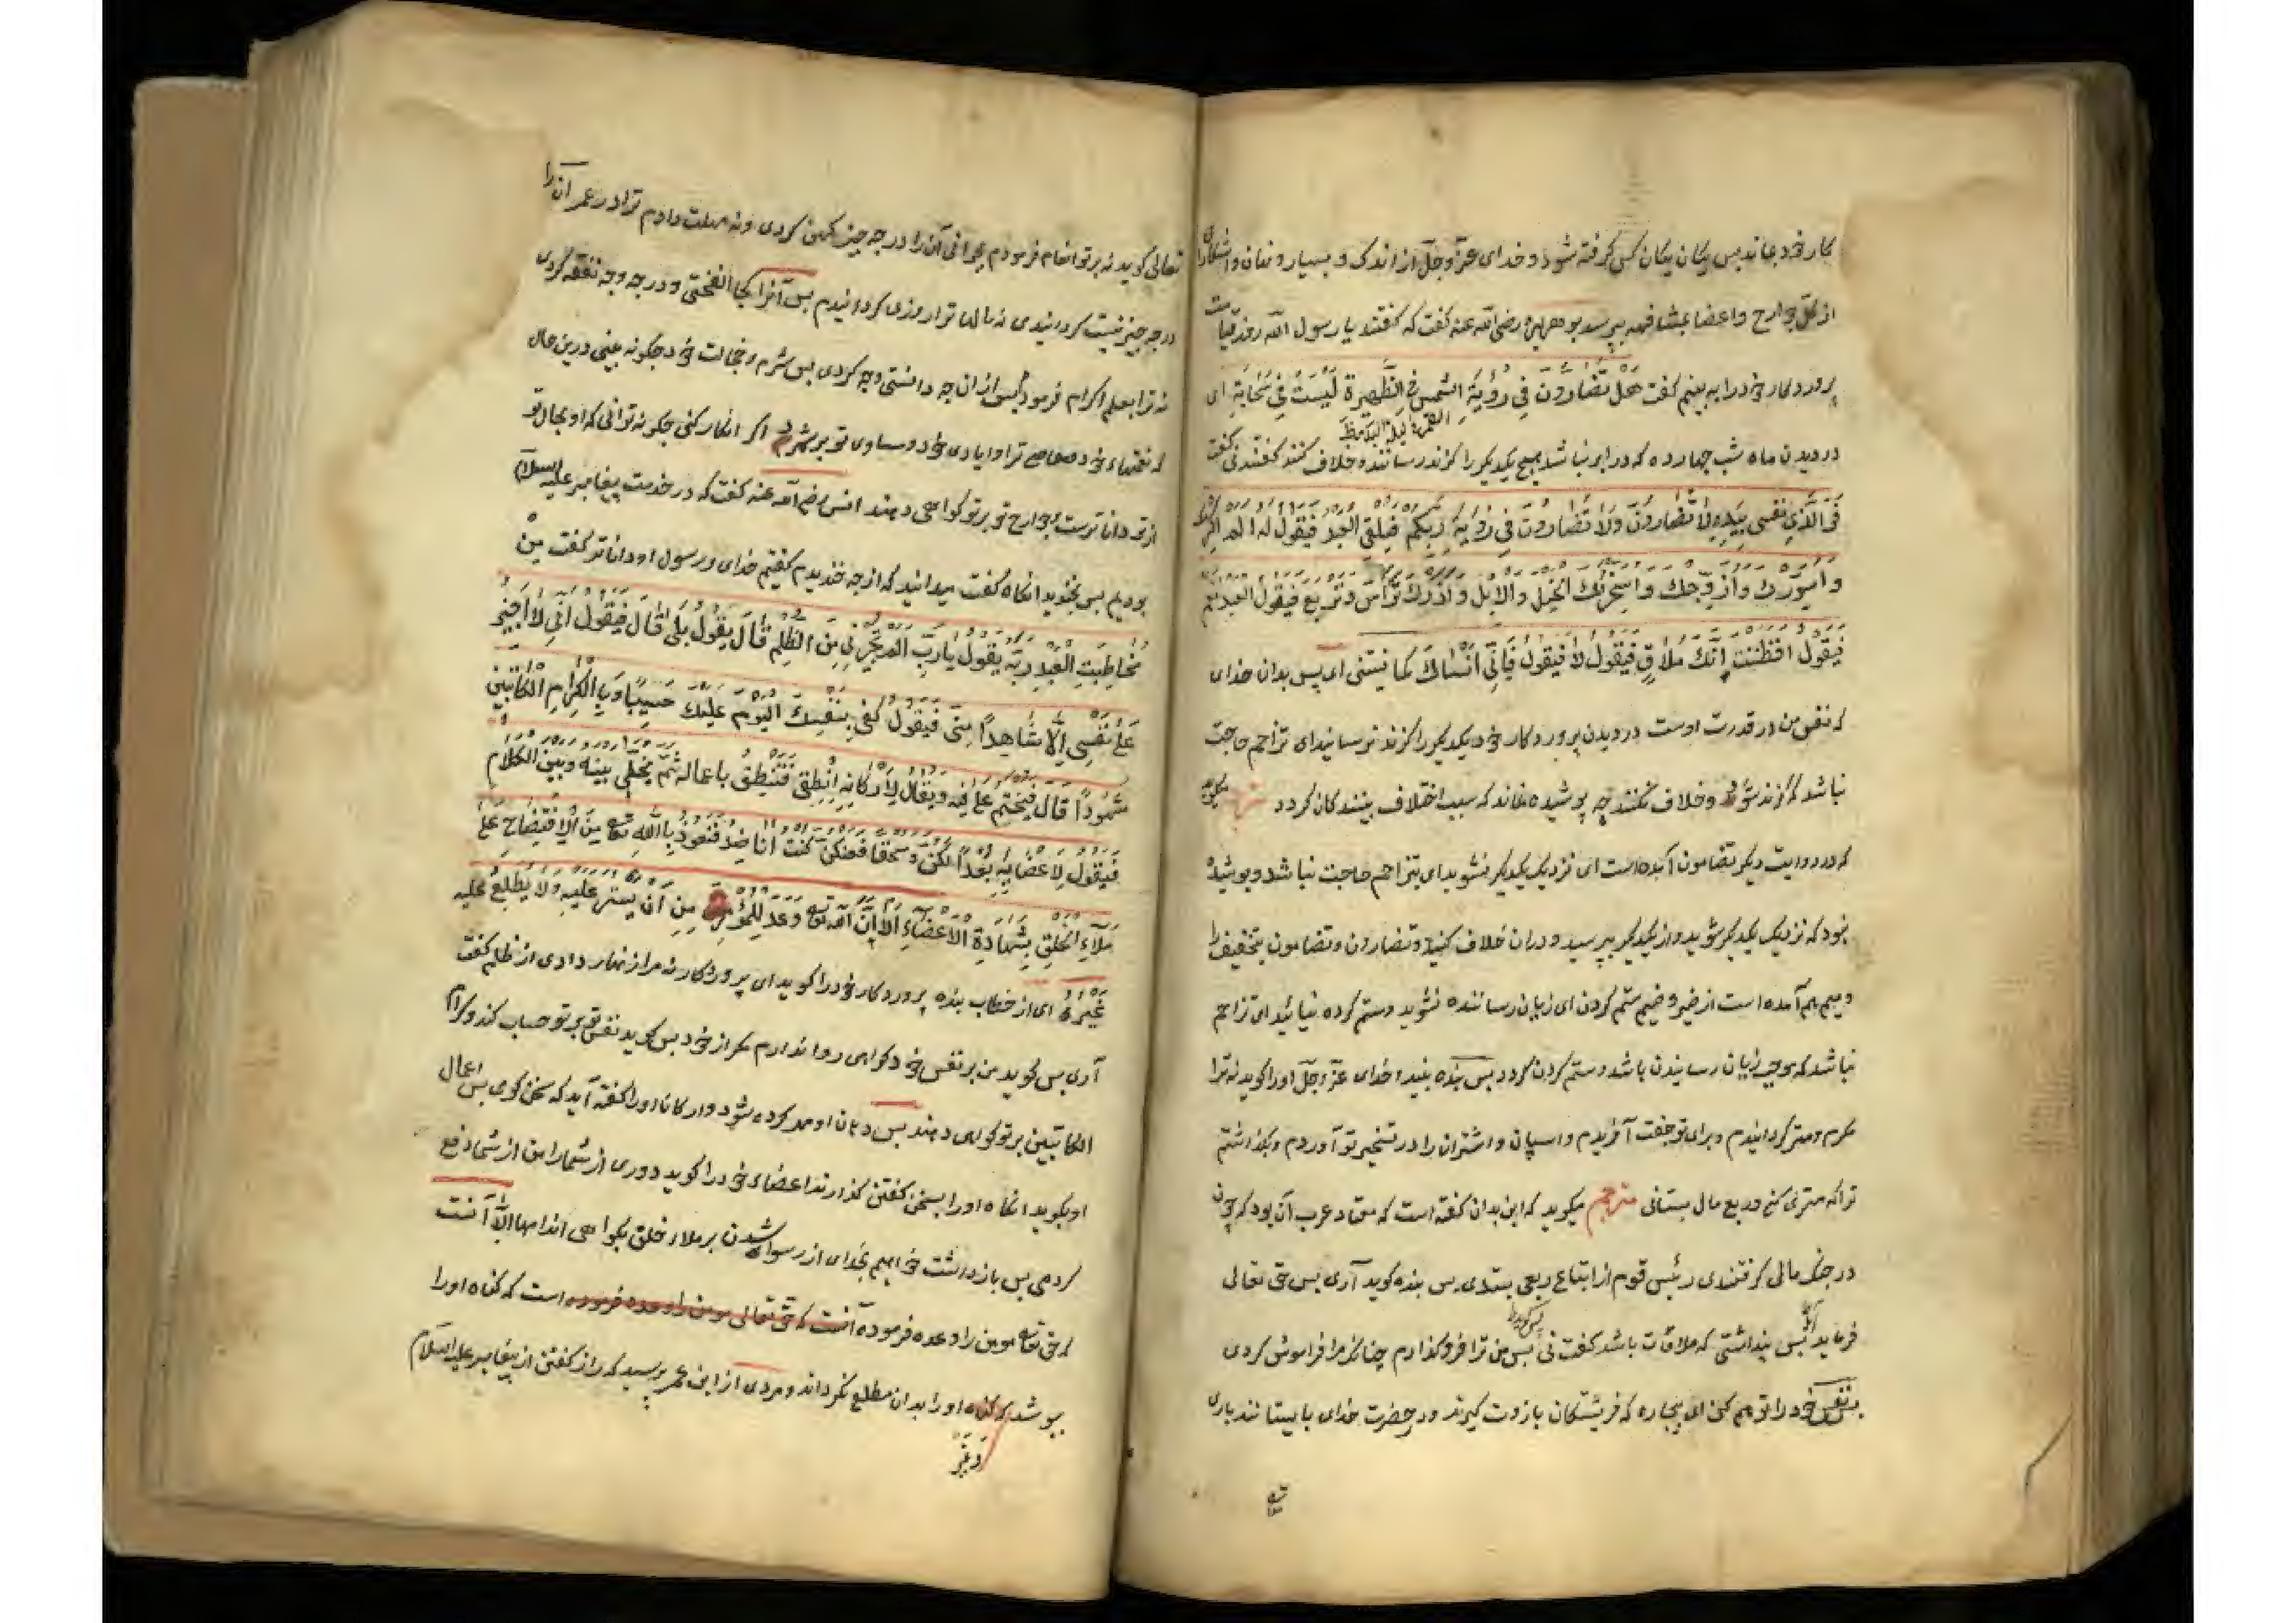 کار خود بماند پس یکان یکان کس گرفته شود و خدای عزّ و جلّ از اندک و بسیار و نهان و آشکارا
از کل جوارح و اعضا بمشافهه بپرسد بوهریره رضی الله عنه گفت که گفتند یا رسول الله روز قیامت
پروردکار خود را ببینیم گفت هَلْ تُضَارُّونَ فِي رُؤْيَةِ الشَّمْسِ فِي الظَّهِيرَةِ لَيْسَتْ فِي سَحَابَةٍ ای
القمر لیلة البدر
در دیدن ماه شب چهارده که در ابر نباشد هیچ یکدیکر را کزند رسانند و خلاف کنند گفتند نی گفت
فَوَالَّذِي نَفْسِي بِيَدِهِ لَا تُضَارُّونَ وَلَا تُضَارُونَ فِي رُؤْيَةِ رَبِّكُمْ فَيَلْقَى الْعَبْدَ فَيَقُولُ لَهُ أَلَمْ أُكْرِمْكَ
وَأُسَوِّدْكَ وَأُزَوِّجْكَ وَأُسَخِّرْ لَكَ الْخَيْلَ وَالْإِبِلَ وَأَذَرْكَ تَرْأَسُ وَتَرْبَعُ فَيَقُولُ الْعَبْدُ نَعَمْ
فَيَقُولُ أَفَظَنَنْتَ أَنَّكَ مُلَاقٍ فَيَقُولُ لَا فَيَقُولُ فَإِنِّي أَنْسَاكَ كَمَا نَسِيتَنِي ای پس بدان خدای
که نفس من در قدرت اوست در دیدن پروردکار خود یکدیکر را کزند نرسانید ای تزاحم حاجت
نباشد که کزند شود و خلاف نکنند چه پوشیده نماند که سبب اختلاف بینندکان کردد
که در روایت دیکر تضامون آمده است ای نزدیک یکدیکر نشوید ای بتزاحم حاجت نباشد و پوشیده
نبود که نزدیک یکدیکر شوید و از یکدیکر بپرسید و در آن خلاف کنید و تضارون و تضامون بتخفیف را
و میم هم آمده است از ضیر و ضیم ستم کردن ای زیان رساننده نشوید و ستم کرده نیائید ای تزاحم
نباشد که موجب زیان رسانیدن باشد و ستم کردن کردد پس بنده بیند و خدای عزّ و جلّ او را کوید نه ترا
مکرم و مهتر کردانیدم و برای تو جفت آفریدم و اسپان و اشتران را در تسخیر تو آوردم و بکذاشتم
ترا که مهتری کنی و ربع مال بستانی مترجم میکوید که این بدان کفته است که معتاد عرب آن بود که چون
در جنک مالی کرفتندی رئیس قوم از اتباع ربعی بستدی پس بنده کوید آری پس حق تعالی
فرماید پس پنداشتی که ملاقات باشد کفت نی پس من ترا فروکذارم چنانکه مرا فراموش کردی
بنفس خود را توهم کن ای بیچاره که فرشتکان بازوت کیرند و در حضرت خدای بایستانند باری
تعالی کوید نه بر تو انعام فرمودم بجوانی آن را در چه چیز کهن کردی و نه مهلت دادم ترا در عمر آن را
در چه چیز نیست کردنیدی نه مالها ترا روزی کردانیدم پس آنرا کجا الفختی و در چه وجه نفقه کردی
نه ترا بعلم اکرام فرمودم پس از آن چه دانستی چه کردی پس شرم و خجالت خود چکونه بینی در این حال
که نعمتهاء خود و معاصی ترا و ایادی خود و مساوی تو بر شمرد اکر انکار کنی چکونه توانی که او بحال تو
از تو داناترست و جوارح تو بر تو کواهی دهند انس رضی الله عنه کفت که در خدمت پیغامبر علیه السلام
بودیم پس بخندید آنکاه کفت میدانید که از چه خندیدم کفتیم خدای و رسول او داناتر کفت مِنْ
مُخَاطَبَةِ الْعَبْدِ رَبَّهُ يَقُولُ يَا رَبِّ أَلَمْ تُجِرْنِي مِنَ الظُّلْمِ قَالَ يَقُولُ بَلَى قَالَ فَيَقُولُ إِنِّي لَا أُجِيزُ
عَلَى نَفْسِي إِلَّا شَاهِدًا مِنِّي فَيَقُولُ كَفَى بِنَفْسِكَ الْيَوْمَ عَلَيْكَ حَسِيبًا وَبِالْكِرَامِ الْكَاتِبِينَ
شُهُودًا قَالَ فَيُخْتَمُ عَلَى فِيهِ وَيُقَالُ لِأَرْكَانِهِ انْطِقِي فَتَنْطِقُ بِأَعْمَالِهِ ثُمَّ يُخَلَّى بَيْنَهُ وَبَيْنَ الْكَلَامِ
فَيَقُولُ لِأَعْضَائِهِ بُعْدًا لَكُنَّ وَسُحْقًا فَعَنْكُنَّ كُنْتُ أُنَاضِلُ فَنَعُوذُ بِاللَّهِ تع مِنَ الْاِفْتِضَاحِ عَلَى
مَلَاءِ الْخَلْقِ بِشَهَادَةِ الْأَعْضَاءِ إِلَّا أَنَّ اللَّهَ تع وَعَدَ الْمُؤْمِنَ مِنْ أَنْ يَسْتُرَ عَلَيْهِ وَلَا يُطْلِعَ عَلَيْهِ
غَيْرَهُ ای از خطاب بنده پروردکار خود را کوید ای پروردکار نه مرا زنهار دادی از ظلم کفت
آری پس کوید من بر نفس خود کواهی روا ندارم مکر از خود پس کوید نفس تو بر تو حساب کند و کرام
الکاتبین بر تو کواهی دهند پس دهان او مهر کرده شود و ارکان او را کفته آید که سخن کوی پس اعمال
او بکوید آنکاه او را بسخن کفتن کذارند اعضاء خود را کوید دوری از شما را من از شما دفع
کردمی پس بازداشت خواهیم بخدای از رسوا شدن بر ملاء خلق بکواهی اندامها الّا آنست
که حق تع مومن را وعده فرموده آنست که حق تعالی مومن را وعده فرموده است که کناه او را
بپوشد که کناه او را بدان مطلع نکرداند و مردی از ابن عمر پرسید که راز کفتن از پیغامبر علیه السلام